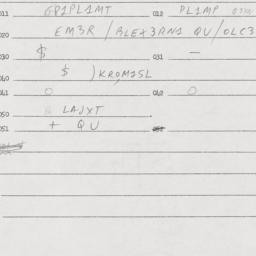 011 GP1PL1MT 012 PL1MP
020 EM3R / ALEX3AN1 QU / OLC3
030 $ 031 —
060 $ ) KROM15L
061 O 062 O
050 LAJXT
051 + QU